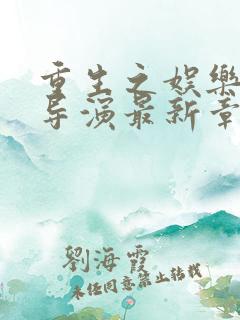 重生之娱樂
导演最新章
劉海霞
未经同意禁止转载